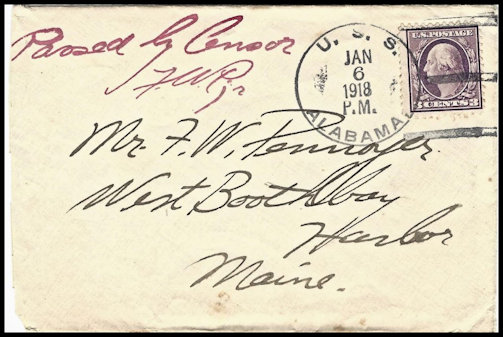 Passed by Censor
U. S. S.
JAN
6
1918
P.M.
ALABAMA
U.S. POSTAGE
3 CENTS 3
Mr. F. W.
West Boothbay
Harbor
Maine.